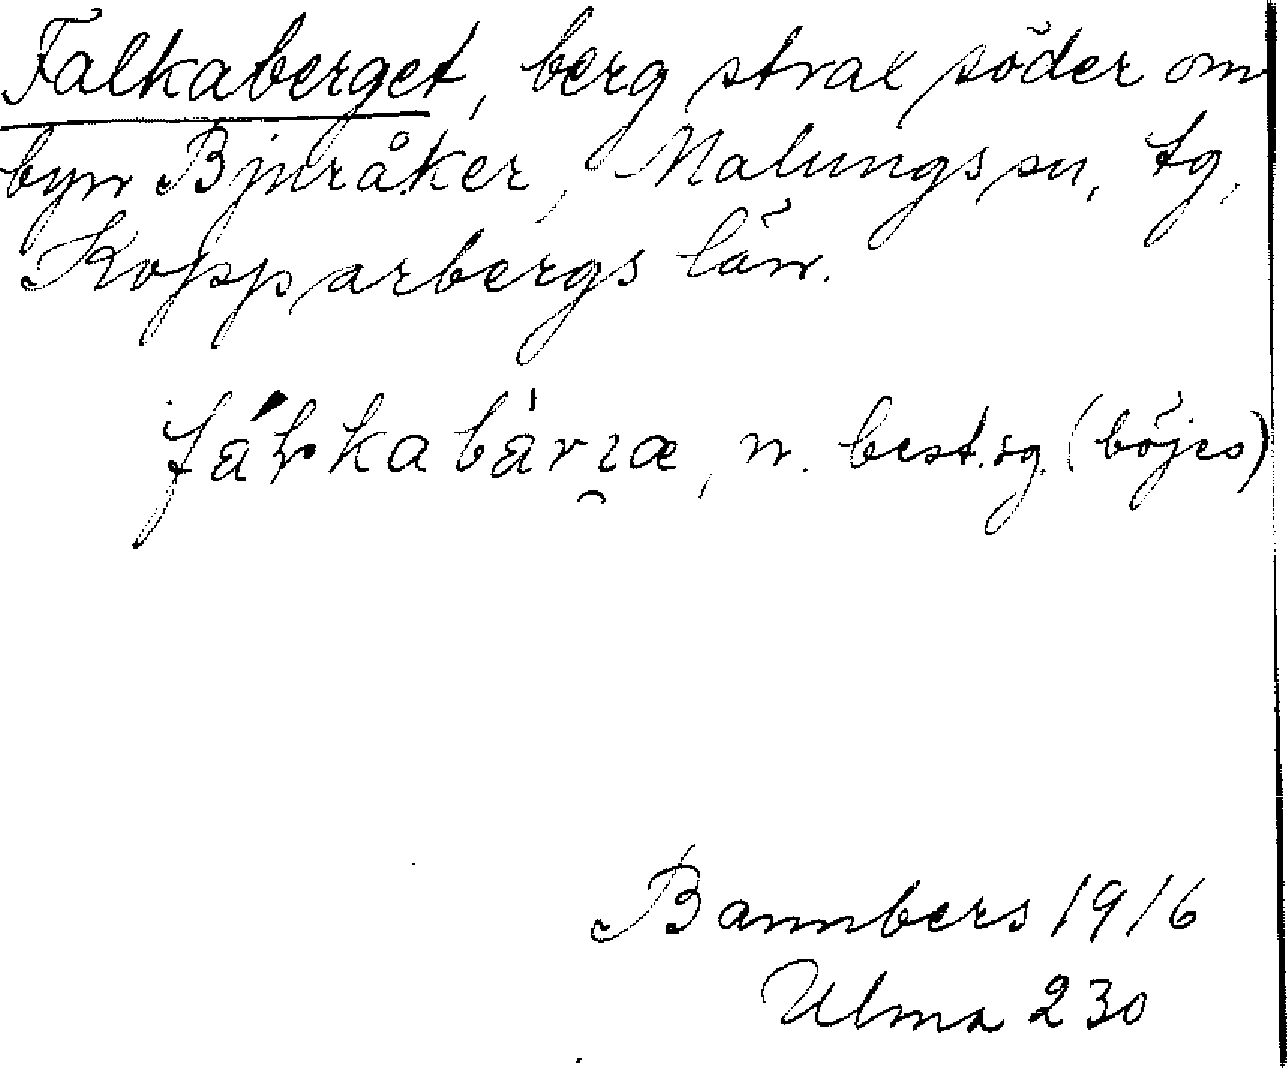 Falkaberget, berg strax söder om
byn Bjuråker, Malungs sn, tg,
Kopparbergs län.
n. best. sg. (böjes)
Bannbers 1916
Ulma 230